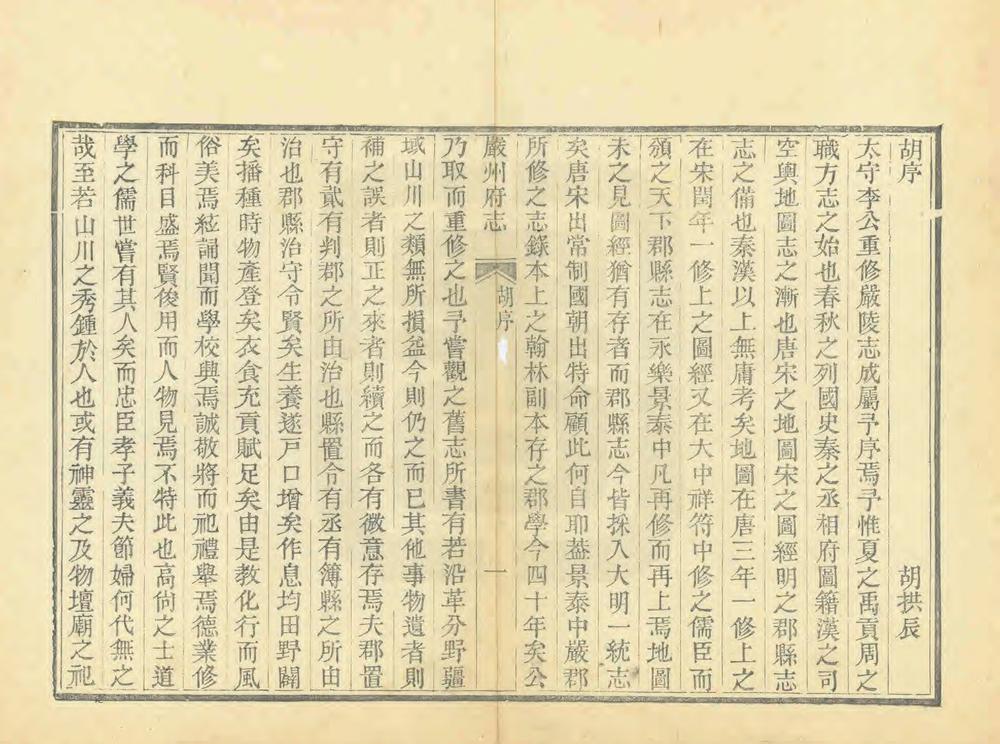 胡序 胡拱辰
太守李公重修嚴陵志成屬予序焉予惟夏之禹貢周之
職方志之始也春秋之列國史秦之丞相府圖籍漢之司
空輿地圖志之漸也唐宋之地圖宋之圖經明之郡縣志
志之備也秦漢以上無庸考矣地圖在唐三年一修上之
在宋閏年一修上之圖經又在大中祥符中修之儒臣而
頒之天下郡縣志在永樂景泰中凡再修而再上焉地圖
未之見圖經猶有存者而郡縣志今皆採入大明一統志
矣唐宋出常制國朝出特命顧此何自耶葢景泰中嚴郡
所修之志錄本上之翰林副本存之郡學今四十年矣公
嚴州府志 胡序 一
乃取而重修之也予嘗觀之舊志所書有若沿革分野疆
域山川之類無所損益今則仍之而已其他事物遺者則
補之誤者則正之來者則續之而各有微意存焉夫郡置
守有貳有判郡之所由治也縣置令有丞有簿縣之所由
治也郡縣治守令賢矣生養遂戶口增矣作息均田野闢
矣播種時物產登矣衣食充貢賦足矣由是教化行而風
俗美焉絃誦聞而學校興焉誠敬將而祀禮舉焉德業修
而科目盛焉賢俊用而人物見焉不特此也高尙之士道
學之儒世嘗有其人矣而忠臣孝子義夫節婦何代無之
哉至若山川之秀鍾於人也或有神靈之及物壇廟之祀